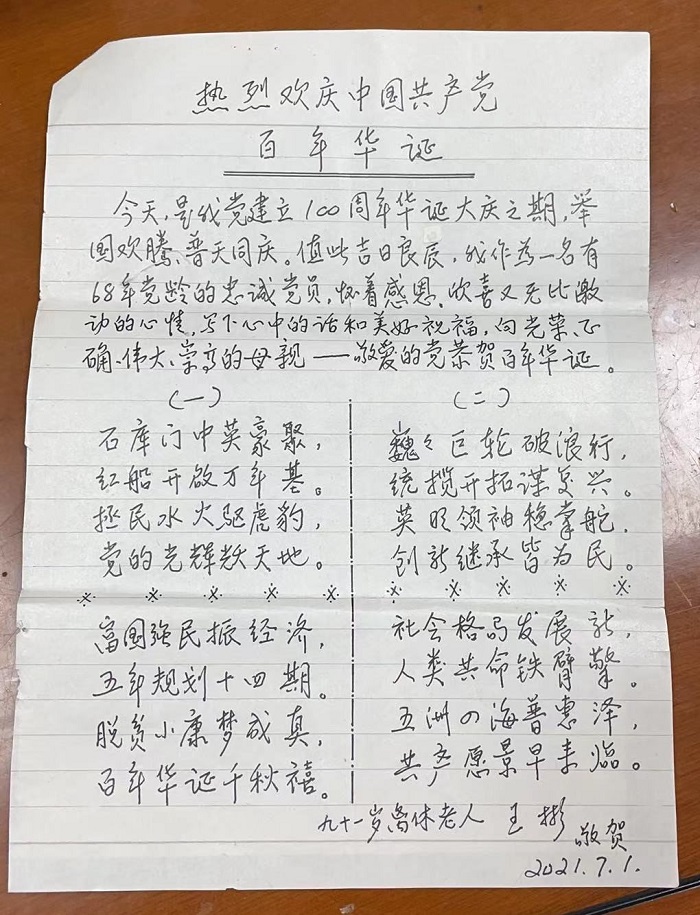 热烈欢庆中国共产党
百年华诞
今天,是我党建立100周年华诞大庆之期,举
国欢腾、普天同庆。值此吉日良辰,我作为一名有
68年党龄的忠诚党员,怀着感恩、欣喜又无比激
动的心情,写下心中的话和美好祝福,向光荣、正
确、伟大、崇高的母亲——敬爱的党恭贺百年华诞。
(一)
石库门中英豪聚,
红船开启万年基。
拯民水火驱虎豹,
党的光辉耀天地。
富国强民振经济,
五年规划十四期。
脱贫小康梦成真,
百年华诞千秋禧。
(二)
巍々巨轮破浪行,
统揽开拓谋复兴。
英明领袖稳掌舵,
创新继承皆为民。
社会格局发展新,
人类共命铁臂擎。
五洲四海普惠泽,
共产愿景早来临。
九十一岁离休老人 王彬
敬贺
2021.7.1.